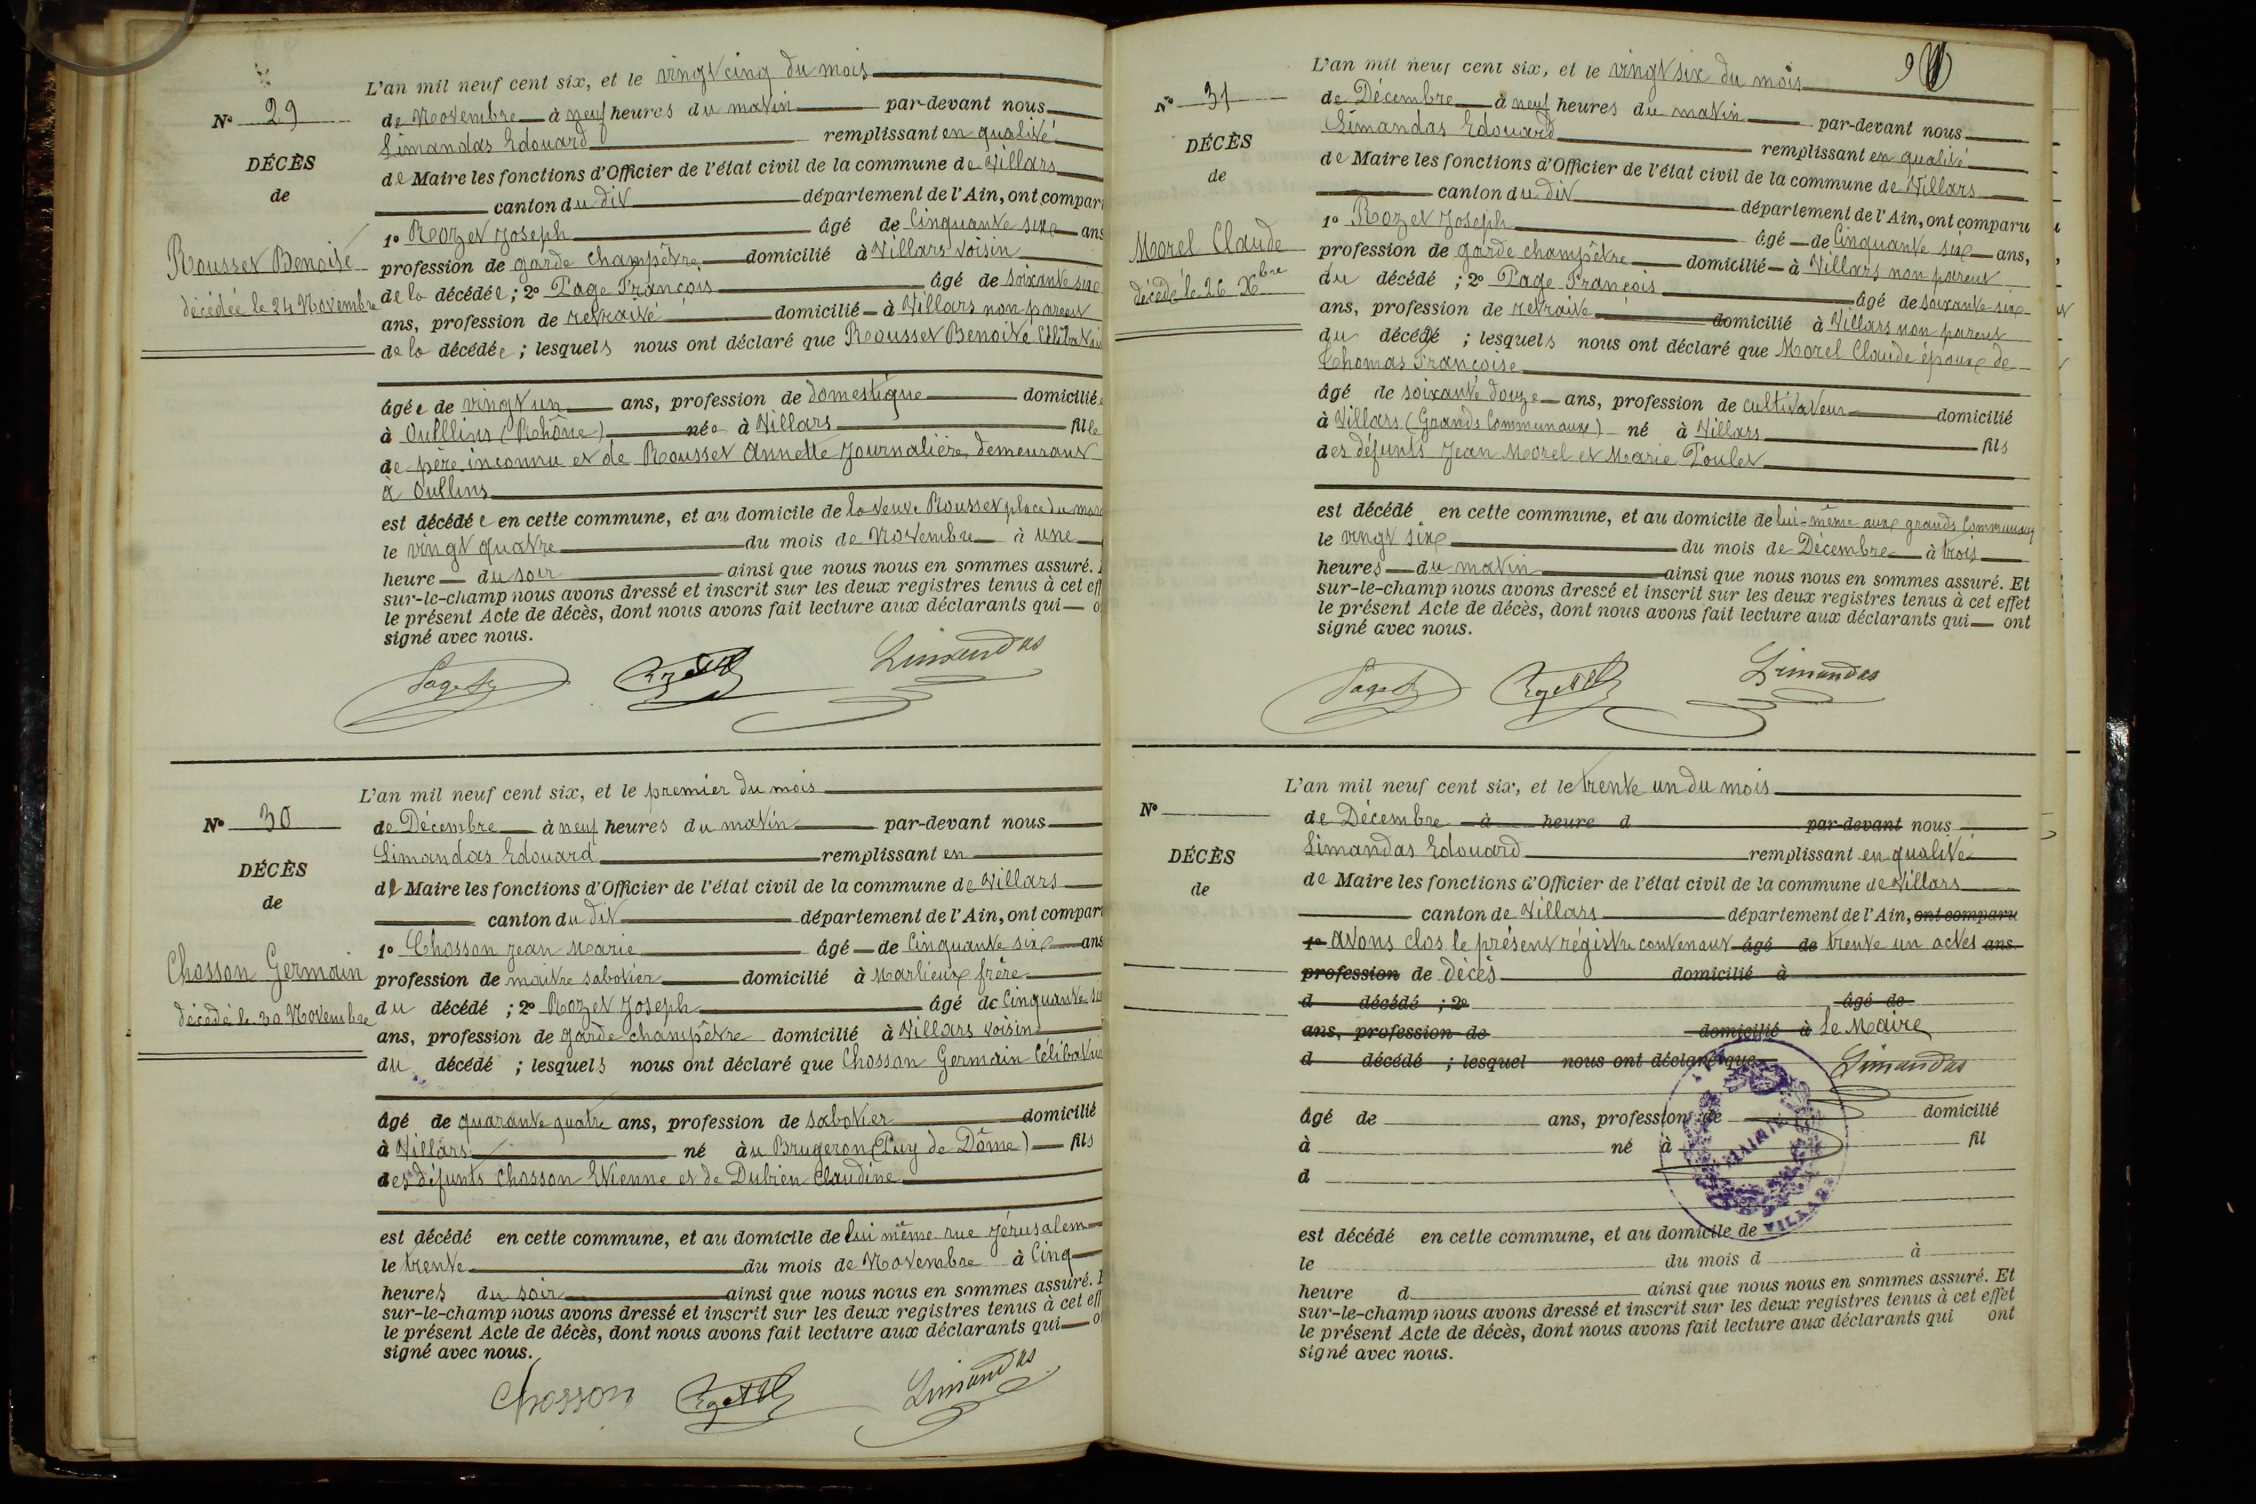 L'an mil neuf cent six, et le vingt cinq du mois
N° 29
de Novembre à neuf heures du matin par-devant nous
Limandas Edouard remplissant en qualité
DÉCÈS
de Maire les fonctions d'Officier de l'état civil de la commune de Villars
de
canton du dit département de l'Ain, ont compar
1° Rozet Joseph âgé de Cinquante six ans
Rousset Benoite
profession de garde champêtre domicilié à Villars voisin
décédée le 24 Novembre
de la décédée ; 2° Page François âgé de soixante six
ans, profession de retraité domicilié à Villars non parent
de la décédée ; lesquels nous ont déclaré que Rousset Benoite Célibatai
âgée de vingt un ans, profession de domestique domiciliée
à Oulllins (Rhône) née à Villars fille
de père inconnu et de Rousset Annette Journalière demeurant
à Oullins
est décédée en cette commune, et au domicile de la veuve Rousset place du marc
le vingt quatre du mois de Novembre à une
heure du soir ainsi que nous nous en sommes assuré.
sur-le-champ nous avons dressé et inscrit sur les deux registres tenus à cet eff
le présent Acte de décès, dont nous avons fait lecture aux déclarants qui o
signé avec nous.
Page Rozet Limandas
L'an mil neuf cent six, et le premier du mois
N° 30
de Décembre à neuf heures du matin par-devant nous
Limandas Edouard remplissant en
DÉCÈS
de Maire les fonctions d'Officier de l'état civil de la commune de Villars
de
canton du dit département de l'Ain, ont compar
1° Chosson Jean Marie âgé de Cinquante six ans
Chosson Germain
profession de maitre sabotier domicilié à Marlieux frère
décédé le 30 Novembre
du décédé ; 2° Rozet Joseph âgé de Cinquante six
ans, profession de garde champêtre domicilié à Villars voisin
du décédé ; lesquels nous ont déclaré que Chosson Germain Célibatai
âgé de quarante quatre ans, profession de sabotier domicilié
à Villars né àu Brugeron (Puy de Dôme) fils
des défunts Chosson Etienne et de Dubien Claudine
est décédé en cette commune, et au domicile de lui même rue Jérusalem
le trente du mois de Novembre à Cinq
heures du soir ainsi que nous nous en sommes assuré. E
sur-le-champ nous avons dressé et inscrit sur les deux registres tenus à cet eff
le présent Acte de décès, dont nous avons fait lecture aux déclarants qui o
signé avec nous.
Chosson Rozet Limandas
L'an mil neuf cent six, et le vingt six du mois
N° 31
de Décembre à neuf heures du matin par-devant nous
Limandas Edouard remplissant en qualité
DÉCÈS
de Maire les fonctions d'Officier de l'état civil de la commune de Villars
de
canton du dit département de l'Ain, ont comparu
1° Rozet Joseph âgé de Cinquante six ans,
Morel Claude
profession de garde champêtre domicilié à Villars non parent
décédé le 26 Xbre
du décédé ; 2° Page François âgé de soixante six
ans, profession de retraité domicilié à Villars non parent
du décédé ; lesquels nous ont déclaré que Morel Claude époux de
Thomas Françoise
âgé de soixante douze ans, profession de cultivateur domicilié
à Villars (Grands Communaux) né à Villars fils
des défunts Jean Morel et Marie Poulet
est décédé en cette commune, et au domicile de lui-même aux grands Communaux
le vingt six du mois de Décembre à trois
heures du matin ainsi que nous nous en sommes assuré. Et
sur-le-champ nous avons dressé et inscrit sur les deux registres tenus à cet effet
le présent Acte de décès, dont nous avons fait lecture aux déclarants qui ont
signé avec nous.
Page Rozet Limandas
L'an mil neuf cent six, et le trente un du mois
N°
de Décembre à heure d par-devant nous
Limandas Edouard remplissant en qualité
DÉCÈS
de Maire les fonctions d'Officier de l'état civil de la commune de Villars
de
canton de Villars département de l'Ain, ont comparu
1° avons clos le présent régistre contenant âgé de trente un actes ans
profession de décès domicilié à
d décédé ; 2° âgé de
ans, profession de domicilié à Le Maire
d décédé ; lesquel nous ont déclaré que Limandas
âgé de ans, profession de domicilié
à né à fil
MAIRIE
d
VILLARS
est décédé en cette commune, et au domicile de
le du mois d à
heure d ainsi que nous nous en sommes assuré. Et
sur-le-champ nous avons dressé et inscrit sur les deux registres tenus à cet effet
le présent Acte de décès, dont nous avons fait lecture aux déclarants qui ont
signé avec nous.